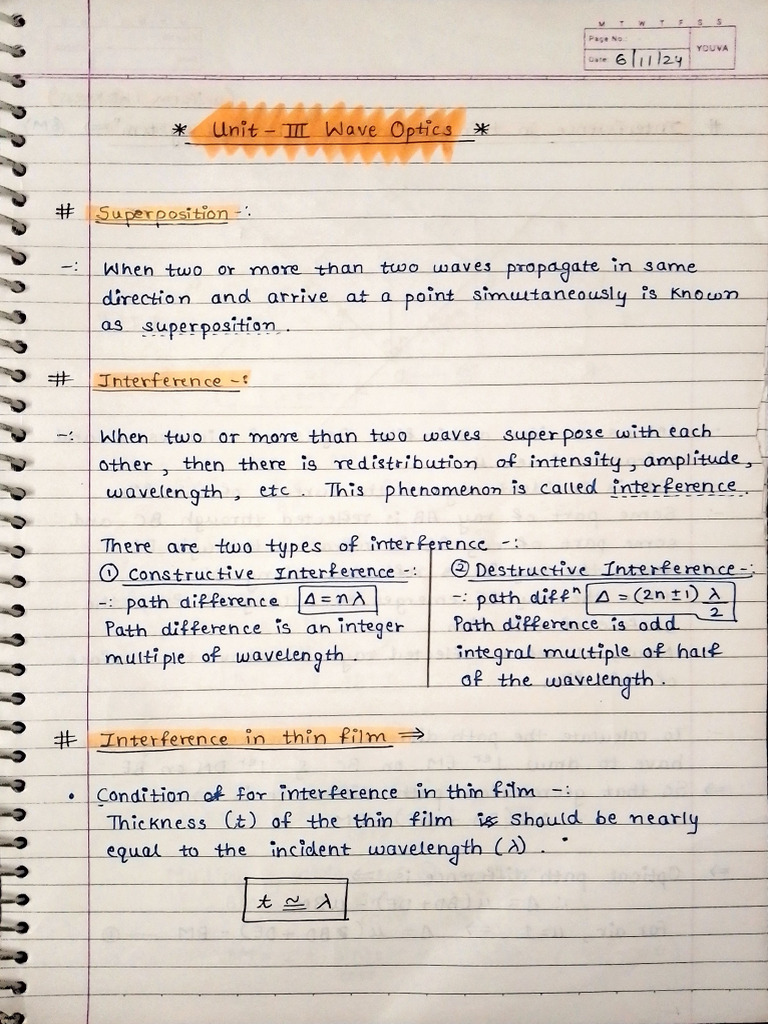 M T W T F S S
Page No.:
YOUVA
Date: 6/11/24
* Unit - III Wave Optics *
# Superposition -:
-: When two or more than two waves propagate in same
direction and arrive at a point simultaneously is known
as superposition.
# Interference -:
-: When two or more than two waves superpose with each
other, then there is redistribution of intensity, amplitude,
wavelength, etc. This phenomenon is called interference.
There are two types of interference -:
① Constructive Interference -:
-: path difference Δ = nλ
Path difference is an integer
multiple of wavelength.
② Destructive Interference -:
-: path diffⁿ Δ = (2n ± 1) λ/2
Path difference is odd
integral multiple of half
of the wavelength.
# Interference in thin film ⇒
• Condition of for interference in thin film -:
Thickness (t) of the thin film is should be nearly
equal to the incident wavelength (λ).
t ≃ λ